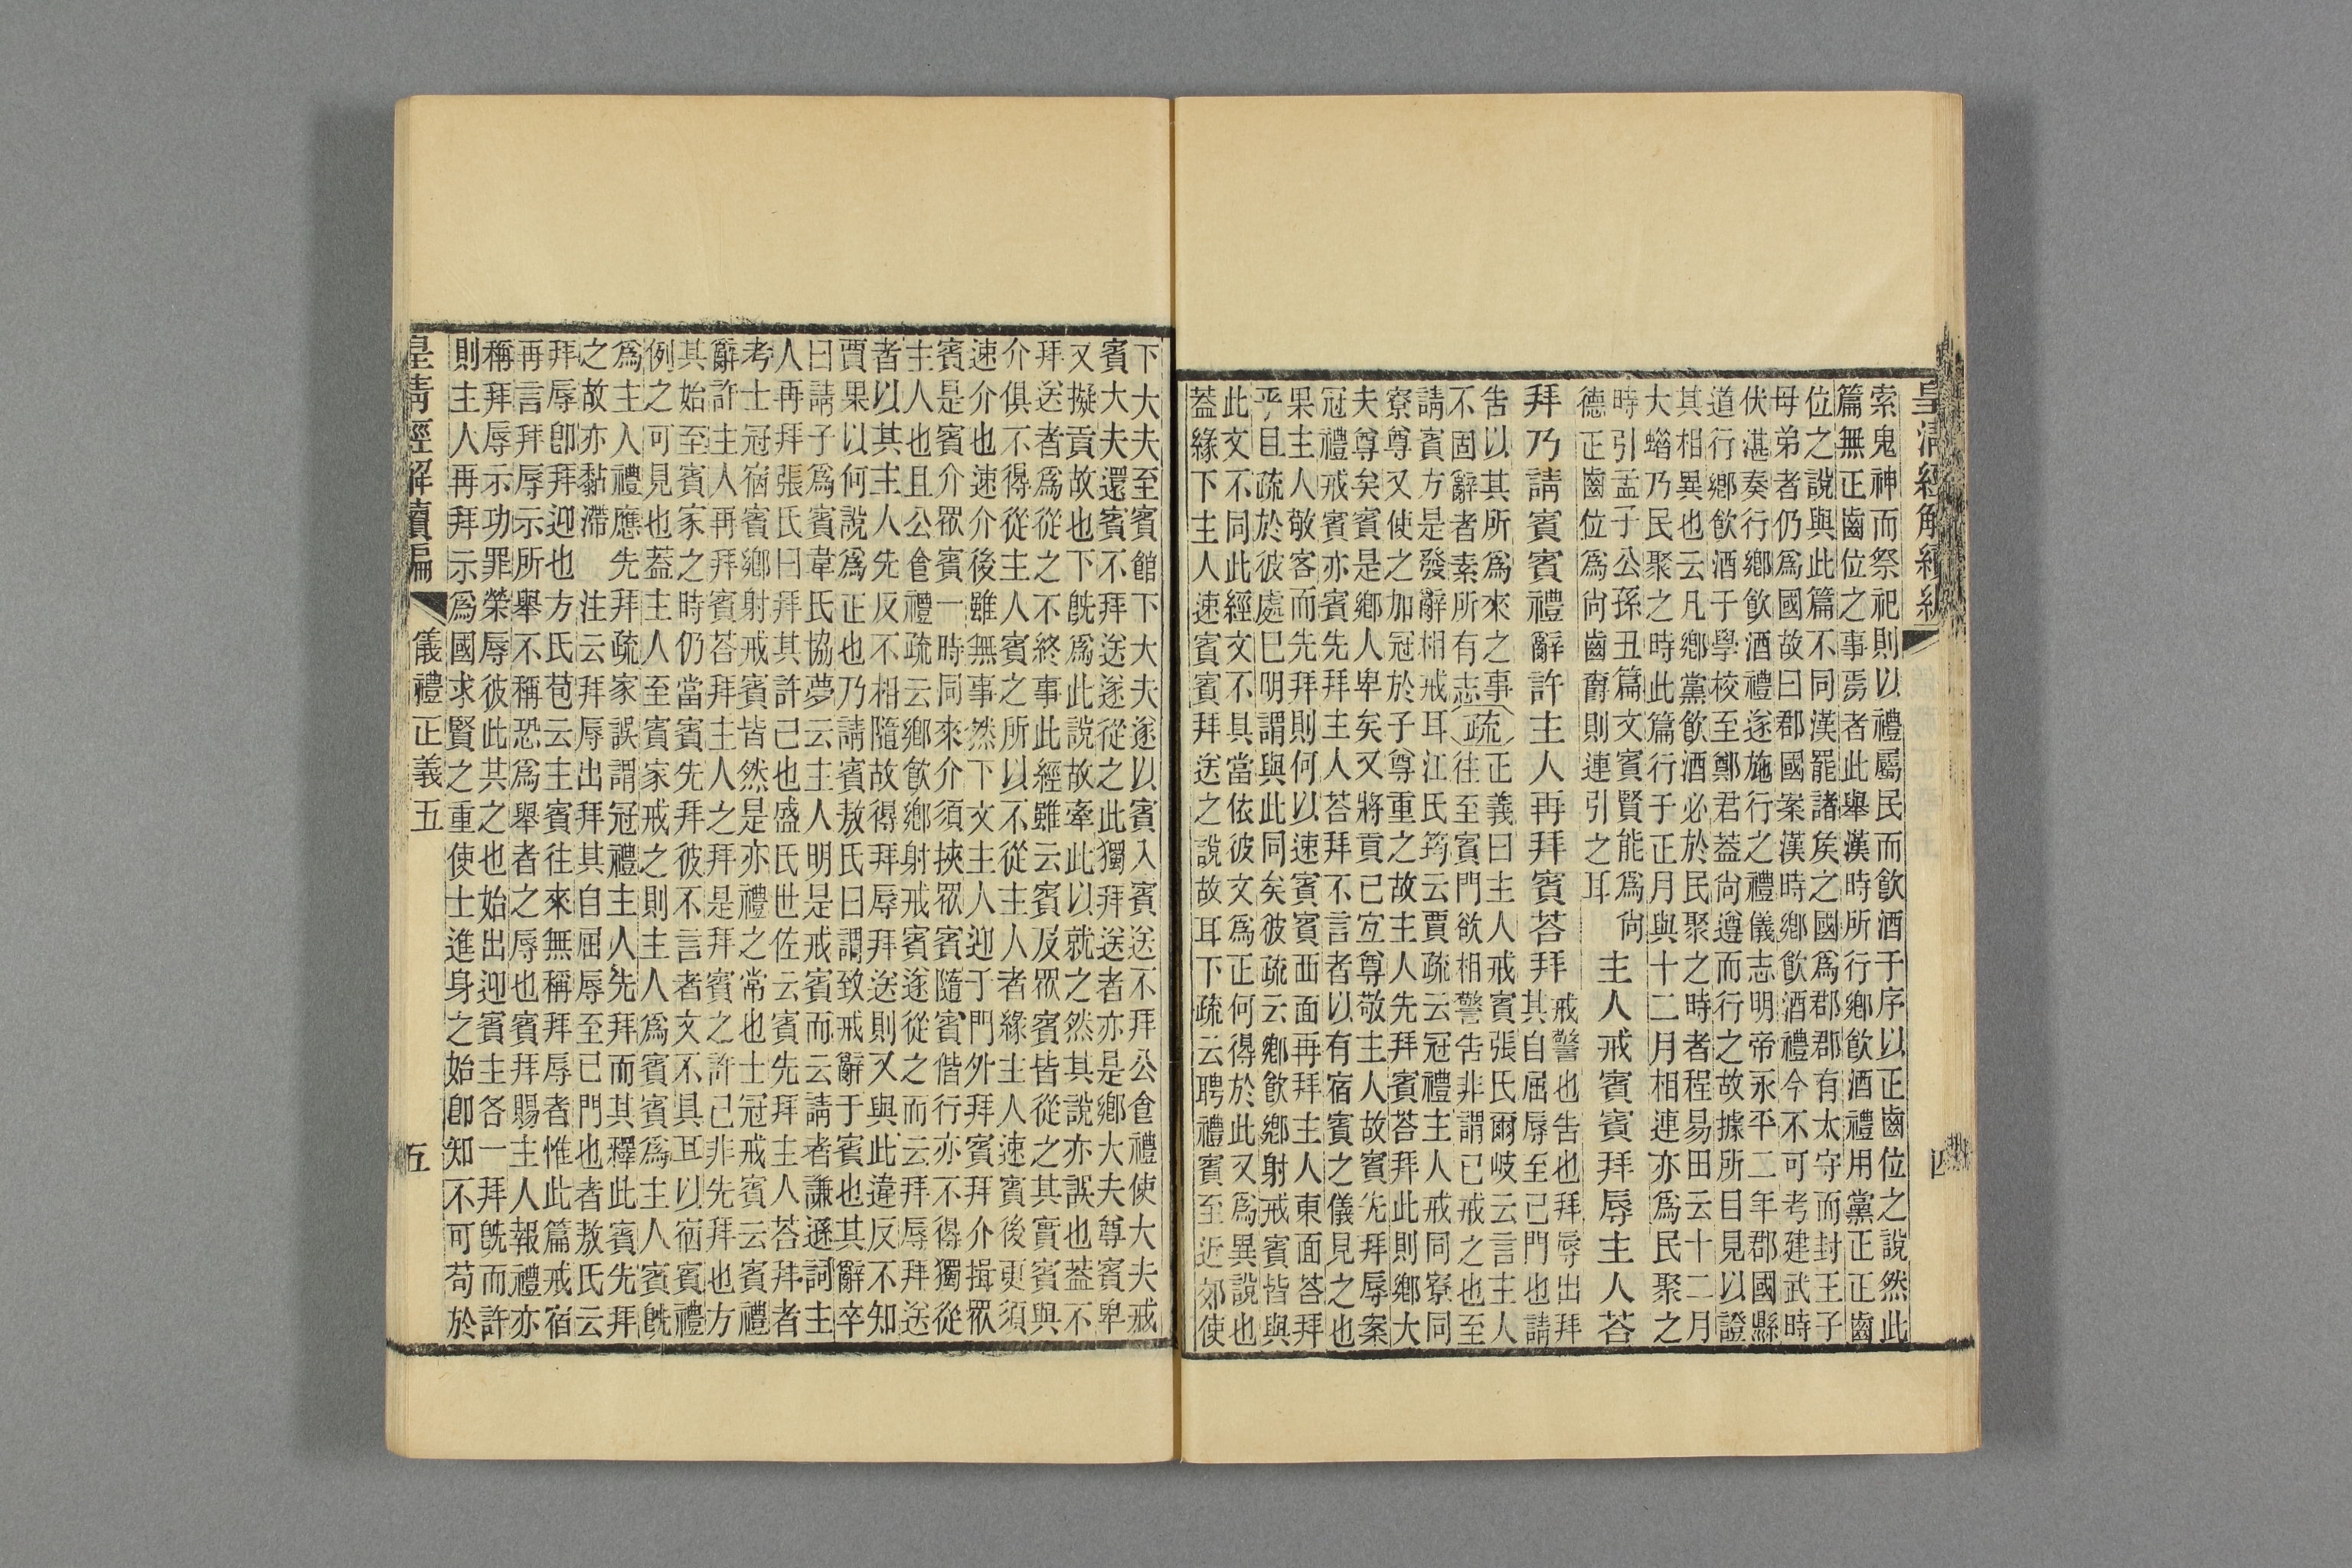 皇清經解續編
四
索鬼神而祭祀則以禮屬民而飮酒于序以正齒位之說然此
篇無正齒位之事焉者此舉漢時所行鄉飮酒禮用黨正正齒
位之說與此篇不同漢罷諸矦之國爲郡郡有太守而封王子
母弟者仍爲國故曰郡國案漢時鄉飮酒禮今不可考建武時
伏湛奏行鄉飮酒禮遂施行之禮儀志明帝永平二年郡國縣
道行鄉飮酒于學校至鄭君蓋尙遵而行之故據所目見以證
其相異也云凡鄉黨飮酒必於民聚之時者程易田云十二月
大蜡乃民聚之時此篇行于正月與十二月相連亦爲民聚之
時引孟子公孫丑篇文賓賢能爲尙
德正齒位爲尙齒爵則連引之耳
主人戒賓賓拜辱主人荅
拜乃請賓賓禮辭許主人再拜賓荅拜
戒警也告也拜辱出拜
其自屈辱至已門也請
告以其所爲來之事
不固辭者素所有志
疏
正義曰主人戒賓張氏爾岐云言主人
往至賓門欲相警告非謂已戒之也至
請賓方是發辭相戒耳江氏筠云賈疏云冠禮主人戒同寮同
寮尊又使之加冠於子尊重之故主人先拜賓荅拜此則鄉大
夫尊矣賓是鄉人卑矣又將貢已宐尊敬主人故賓先拜辱案
冠禮戒賓亦賓先拜主人荅拜不言者以有宿賓之儀見之也
果主人敬客而先拜則何以速賓賓西面再拜主人東面荅拜
乎且疏於彼處巳明謂與此同矣彼疏云鄉飮鄉射戒賓皆與
此文不同此經文不具當依彼文爲正何得於此又爲異說也
蓋緣下主人速賓賓拜送之說故耳下疏云聘禮賓至近郊使
下大夫至賓館下大夫遂以賓入賓送不拜公食禮使大夫戒
賓大夫還賓不拜送遂從之此獨拜送者亦是鄉大夫尊賓卑
又擬貢故也下旣爲此說故牽此以就之然其說亦誤也蓋不
拜送者爲從之不終事此經雖云賓及眾賓皆從之其實賓與
介俱不得從主人賓之所以不從主人者緣主人速賓後更須
速介也速介後雖無事然下文主人迎于門外拜賓拜介揖眾
賓是賓介眾賓一時同來介須挾眾賓隨賓偕行亦不得獨從
主人也且公食禮疏云鄉飮鄉射戒賓遂從之而云拜辱拜送
者以其主人先反不相隨故得拜辱拜送則又與此違反不知
賈果以何說爲正也乃請賓敖氏曰謂致戒辭于賓也其辭卒
曰請子爲賓韋氏協夢云主人明是戒賓而云請者謙遜詞主
人再拜張氏曰拜其許己也盛氏世佐云賓先拜主人荅拜者
考士冠宿賓鄉射戒賓皆然是亦禮之常也士冠戒賓云賓禮
辭許主人再拜賓荅拜主人之拜是拜賓之許己非先拜也方
其始至賓家之時仍當賓先拜彼不言者文不具耳以宿賓禮
例之可見也蓋主人至賓家戒之則主人爲賓賓爲主人賓旣
爲主入禮應先拜疏家誤謂冠禮主人先拜而其釋此賓先拜
之故亦黏滯　注云拜辱出拜其自屈辱至已門也者敖氏云
拜辱卽拜迎也方氏苞云主賓往來無稱拜辱者惟此篇戒宿
再言拜辱示所舉不稱恐爲舉者之辱也賓拜賜主人報禮亦
稱拜辱示功罪榮辱彼此其之也始出迎賓主各一拜旣而許
則主人再拜示爲國求賢之重使士進身之始卽知不可苟於
皇清經解續編
儀禮正義五
五